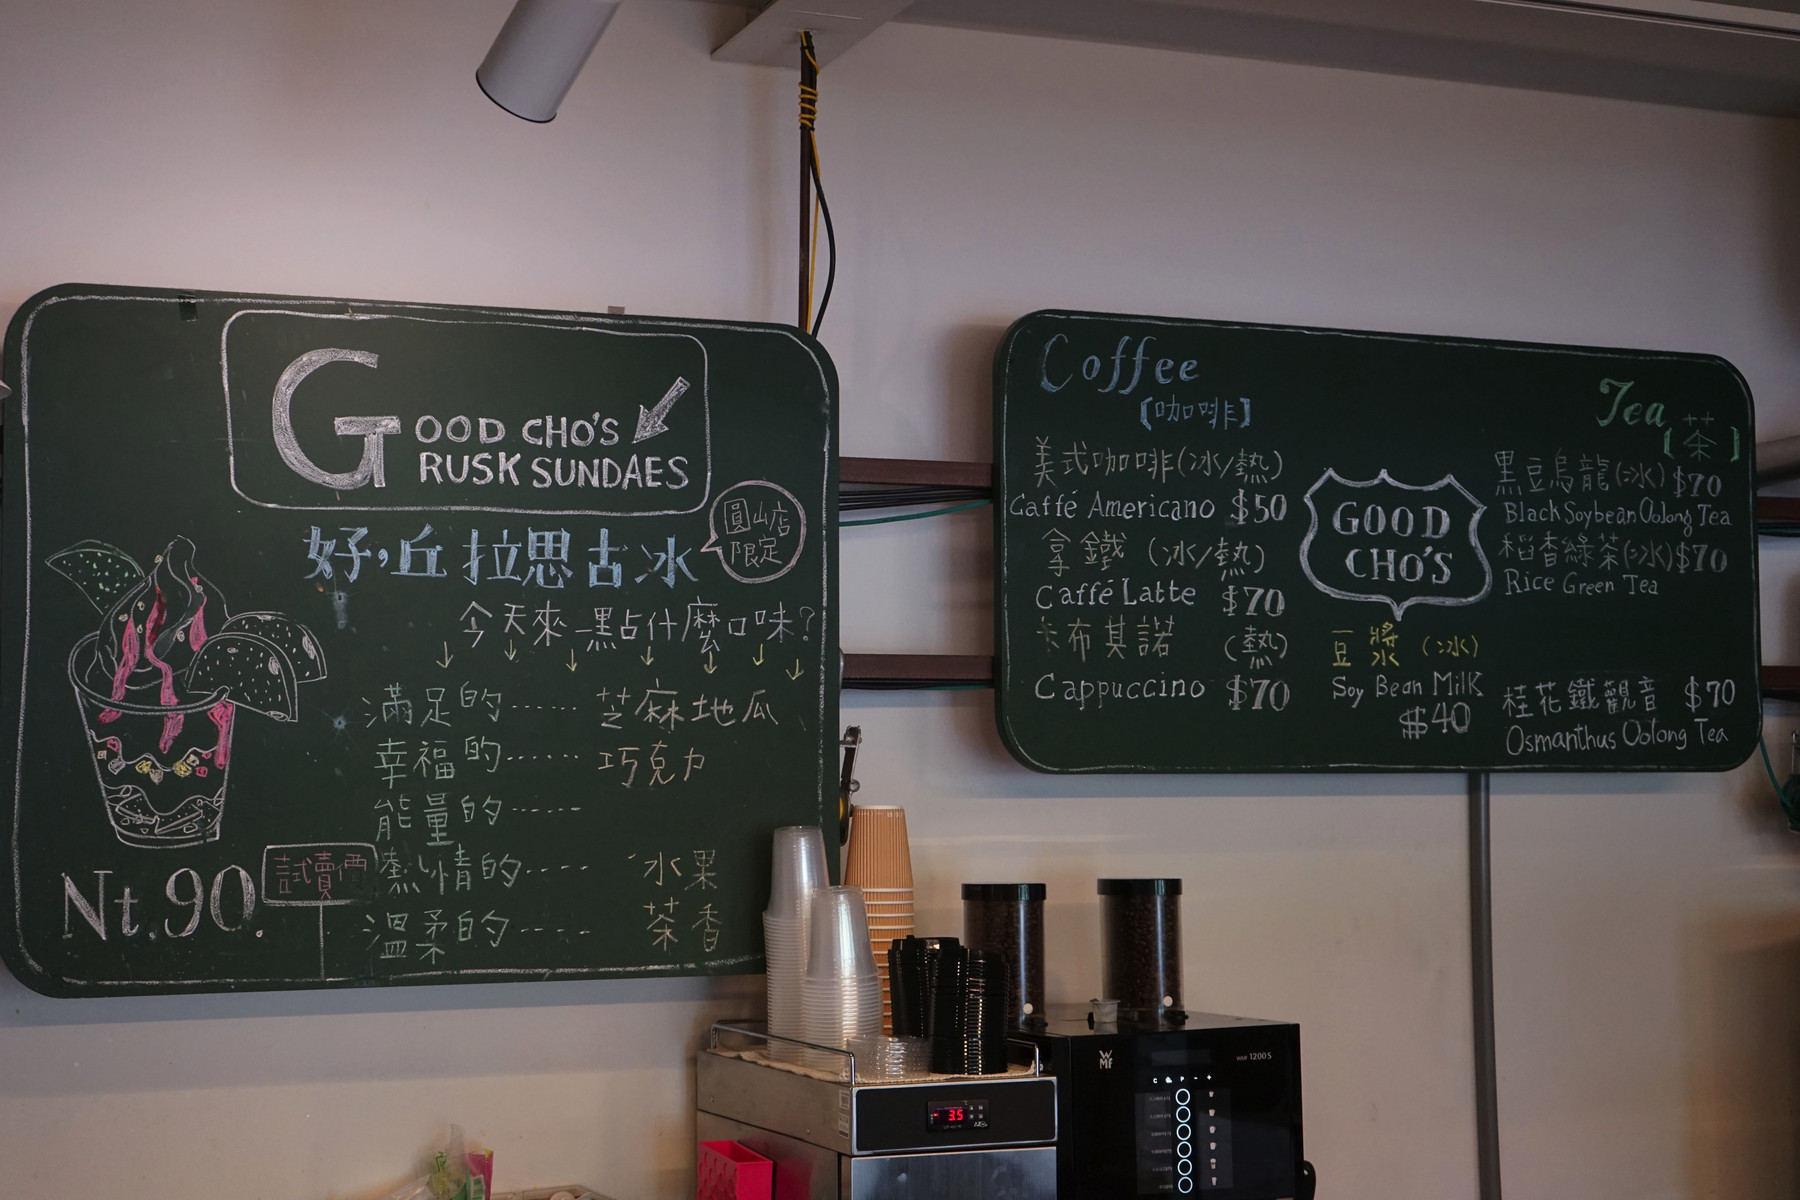 GOOD CHO'S
RUSK SUNDAES
圓山店
限定
好,丘 拉思古冰
今天來一點什麼口味?
滿足的…… 芝麻地瓜
幸福的…… 巧克力
能量的……
熱情的…… 水果
溫柔的…… 茶香
Nt.90.
試賣價
Coffee
【咖啡】
美式咖啡(冰/熱)
Caffé Americano $50
拿鐵 (冰/熱)
Caffé Latte $70
卡布其諾 (熱)
Cappuccino $70
GOOD
CHO'S
豆漿(冰)
Soy Bean Milk
$40
Tea
【茶】
黑豆烏龍(冰) $70
Black Soybean Oolong Tea
稻香綠茶(冰) $70
Rice Green Tea
桂花鐵觀音 $70
Osmanthus Oolong Tea
WMF
WMF 1200 S
3.5